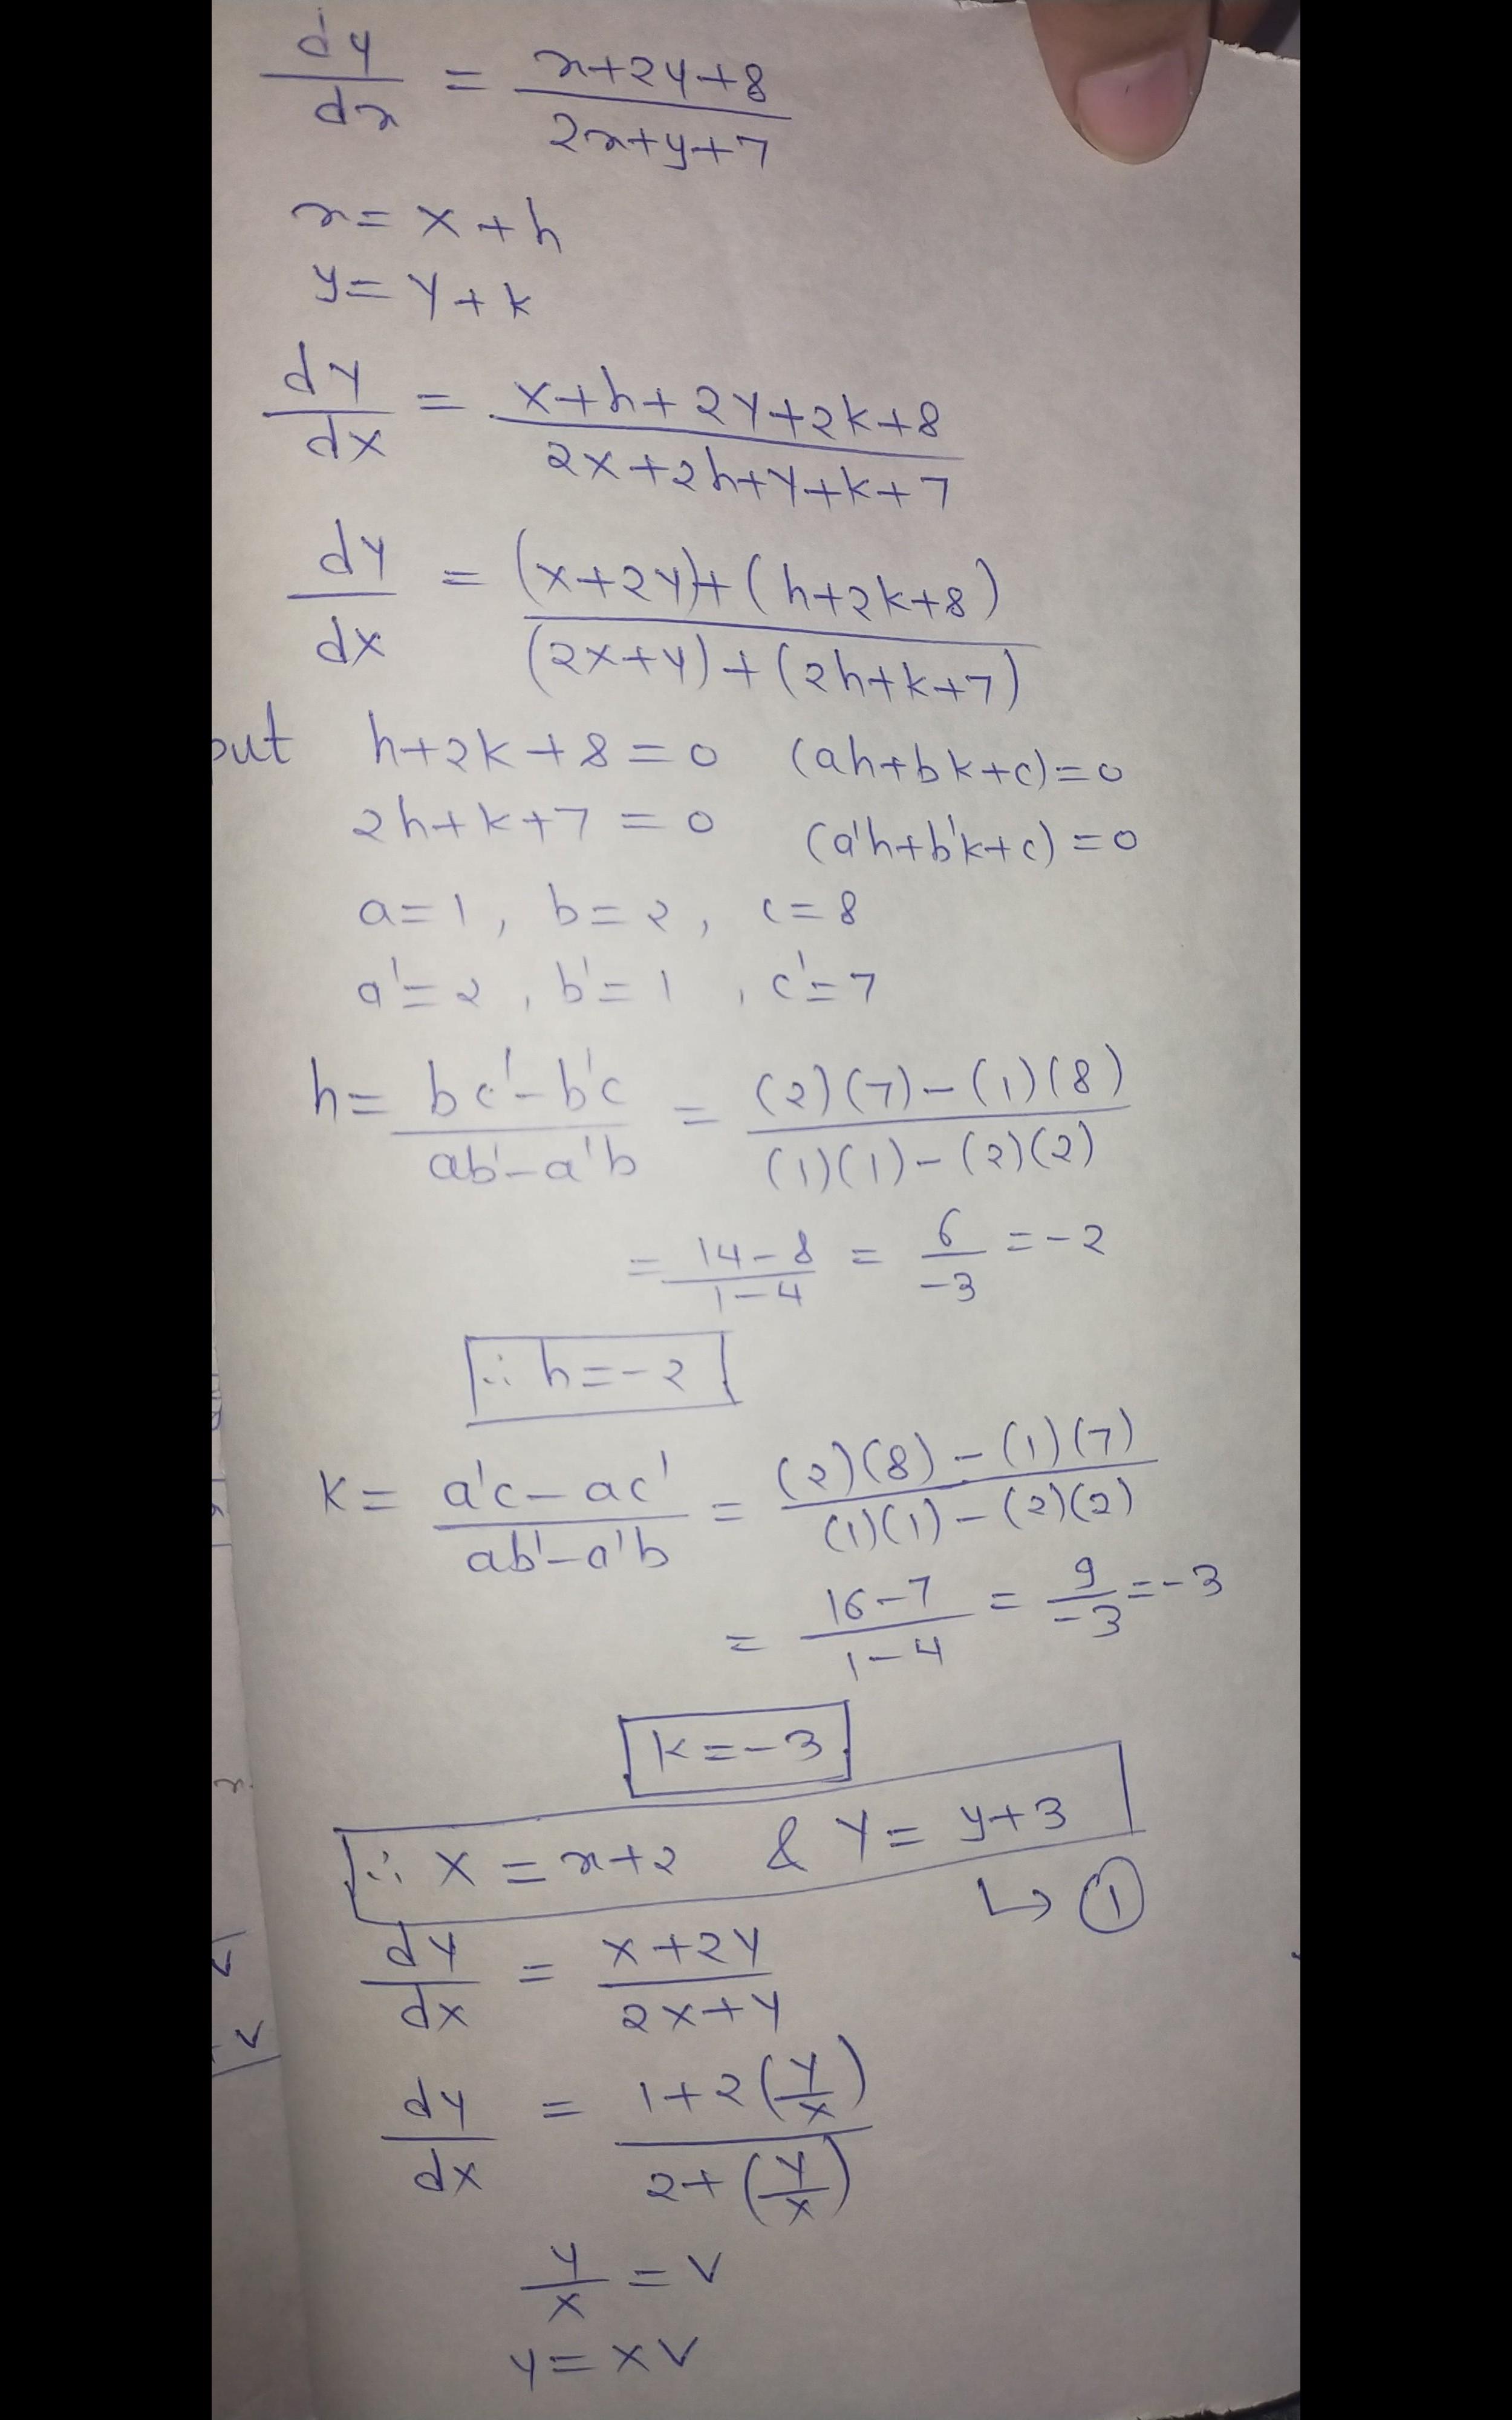 dy/dx = x+2y+8 / 2x+y+7
x = X + h
y = Y + k
dY/dX = X+h+2Y+2k+8 / 2X+2h+Y+k+7
dY/dX = (X+2Y)+(h+2k+8) / (2X+Y)+(2h+k+7)
put h+2k+8=0 (ah+bk+c)=0
2h+k+7=0 (a'h+b'k+c)=0
a=1, b=2, c=8
a'=2, b'=1, c'=7
h= bc'-b'c / ab'-a'b = (2)(7)-(1)(8) / (1)(1)-(2)(2)
= 14-8 / 1-4 = 6/-3 = -2
∴ h=-2
k= a'c-ac' / ab'-a'b = (2)(8)-(1)(7) / (1)(1)-(2)(2)
= 16-7 / 1-4 = 9/-3 = -3
k=-3
∴ X = x+2 & Y = y+3
↳ ①
dY/dX = X+2Y / 2X+Y
dY/dX = 1+2(Y/X) / 2+(Y/X)
Y/X = V
Y = XV